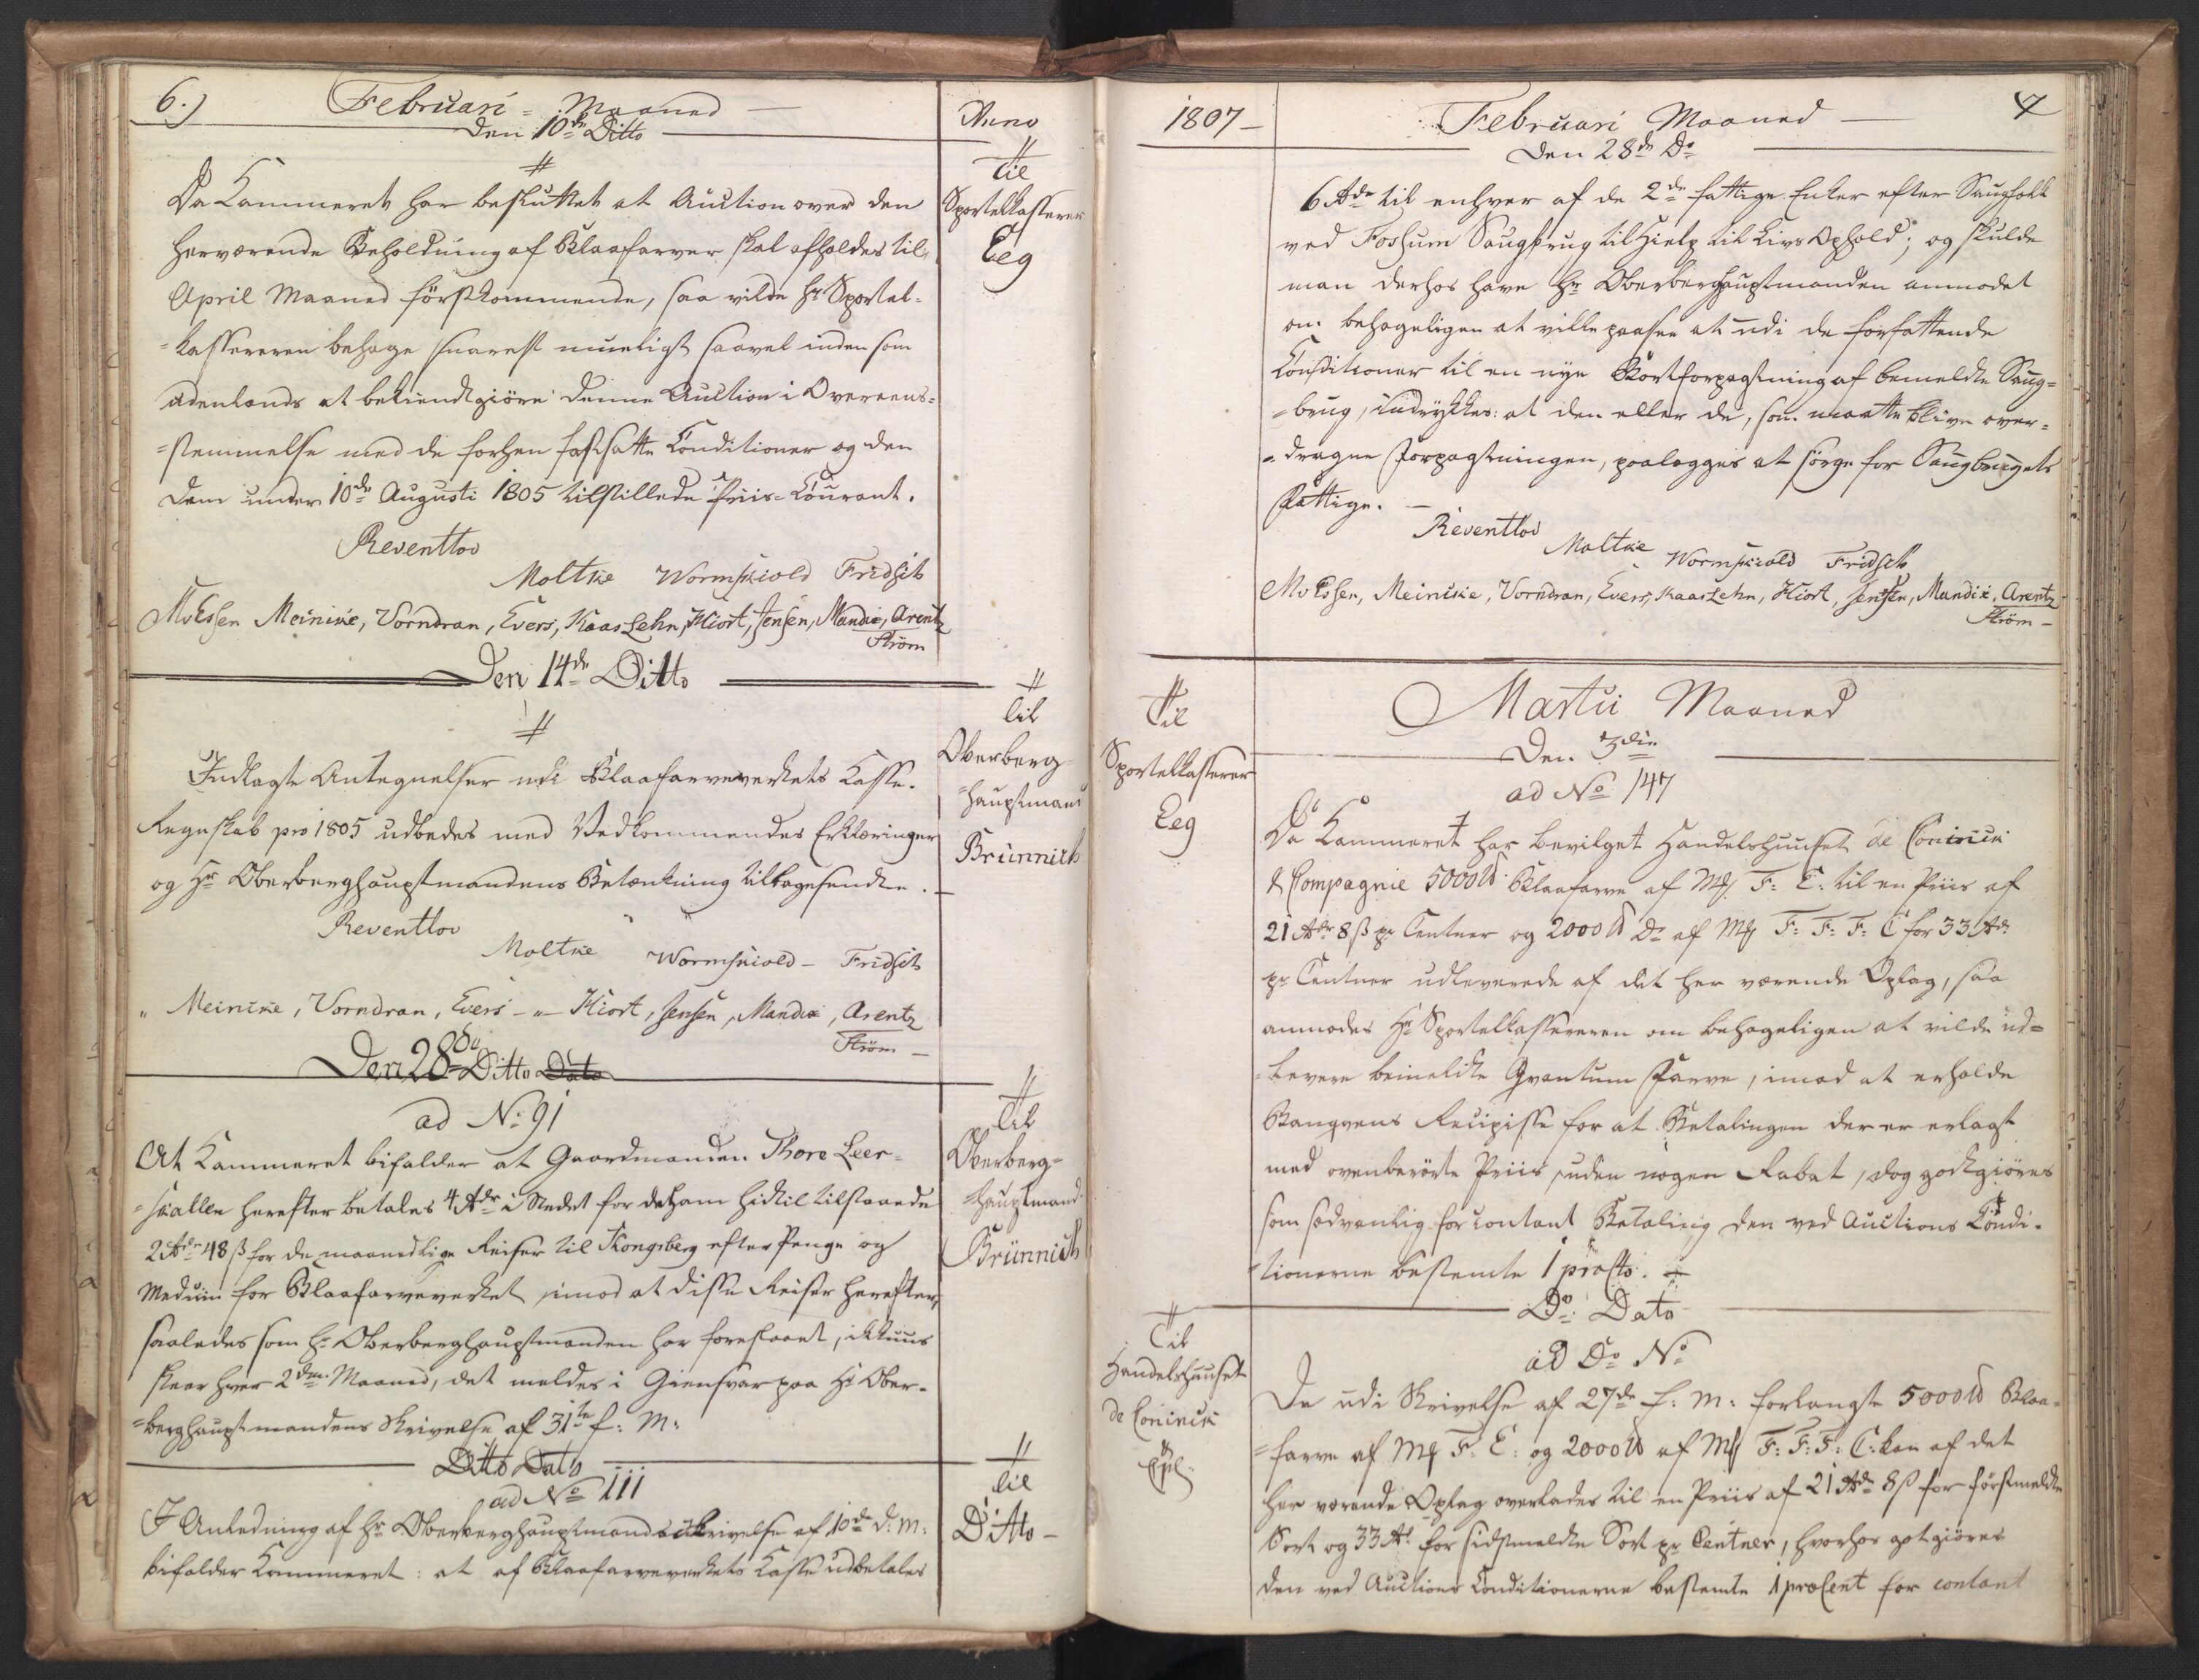 6.) Februari = Maaned —
Den 10de Ditto
Anno
Til
Sportelkasserer
Eeg
Da Kammeret har besluttet at Auction over den
herværende Beholdning af Blaafarver skal afholdes til
April Maaned förstkommende, saa vilde Hr Sportel-
=kassereren behage snarest mueligst saavel inden som
udenlands at bekiendtgiöre denne Auction i Overeens-
=stemmelse med de forhen fastsatte Conditioner og den
Dem under 10de Augusti 1805 tilstillede Priis-Courant.
Reventlov
Moltke Wormskiold Fridsch
Meinike, Vorndran, Evers, Kaas Lehn, Hiort, Jensen, Mandix, Arentz
Ström
Den 14de Ditto
til
Oberberg-
=hauptmand
Brünnich
Indlagte Antegnelser udi Blaafarveverkets Casse-
Regnskab pro 1805 udbedes med Vedkommendes Erklæringer
og Hr Oberberghauptmandens Betænkning tilbagesendte. —
Reventlov
Moltke Wormskiold — Fridsch
" Meinike, Vorndran, Evers — " — Hiort, Jensen, Mandix, Arentz
Ström —
Den 28de Ditto Dato
ad No 91
Til
Oberberg-
=hauptmand
Brünnich
At Kammeret bifalder at Gaardmanden Thore Leer-
=skallen herefter betales 4 Rdr i Stedet for de ham hidtil tilstaaede
2 Rdr 48 ß for de maanedlige Reiser til Kongsberg efter Penge og
Meduin for Blaafarveverket, imod at disse Reiser herefter,
saaledes som Hr Oberberghauptmanden har foreslaaet, ikkuns
skeer hver 2den Maaned, det meldes i Giensvar paa Hr Ober-
=berghauptmandens Skrivelse af 31te f: M:
Ditto Dato
ad No 111
til
Ditto —
I Anledning af Hr Oberberghauptmands Skrivelse af 10de d: M:
bifalder Kammeret: at af Blaafarveverkets Casse udbetales
1807 —
Februari Maaned — 7
Den 28de Do
6 Rdr til enhver af de 2de fattige Enker efter Saugfolk
ved Fossum Saugbrug til Hielp til Livs Ophold; og skulde
man derhos have Hr Oberberghauptmanden anmodet
om behageligen at ville paasee at udi de forfattende
Conditioner til en nye Bortforpagtning af bemeldte Saug-
=brug, indrykkes: at den eller de, som maatte blive over-
=dragne Forpagtningen, paalægges at sörge for Saugbrugets
Fattige. —
Reventlov
Moltke Wormskiold Fridsch
Meinike, Vorndran, Evers, Kaas Lehn, Hiort, Jensen, Mandix, Arentz
Ström —
Martii Maaned
Den 3die
ad No 147
Til
Sportelkasserer
Eeg
Da Kammeret har bevilget Handelshuuset de Coninck
& Compagnie 5000 ℔ Blaafarve af Mk F: C: til en Priis af
21 Rdr 8 ß pr Centner og 2000 ℔ Do af Mk F: F: F: C for 33 Rdr
pr Centner udleverede af det her værende Oplag, saa
anmodes Hr Sportelkassereren om behageligen at vilde ud-
=levere bemeldte Qvantum Farve, imod at erholde
Banqvens Recipisse for at Betalingen der er erlagt
med ovenberörte Priis, uden nogen Rabat, dog godtgiöres
som sædvanlig for contant Betaling den ved Auctions Condi-
=tionerne bestemte 1 proCto. —
Do Dato
ad Do No
Til
Handelshuuset
de Coninck
&
Comp.
De udi Skrivelse af 27de f: M: forlangte 5000 ℔ Blaa-
=farve af Mk F: C: og 2000 ℔ af Mk F: F: F: C: kan af det
her værende Oplag overlades til en Priis af 21 Rdr 8 ß for förstmeldte
Sort og 33 Rd for sidstmeldte Sort pr Centner, hvorhos gotgiöres
den ved Auctions Conditionerne bestemte 1 proCent for contant